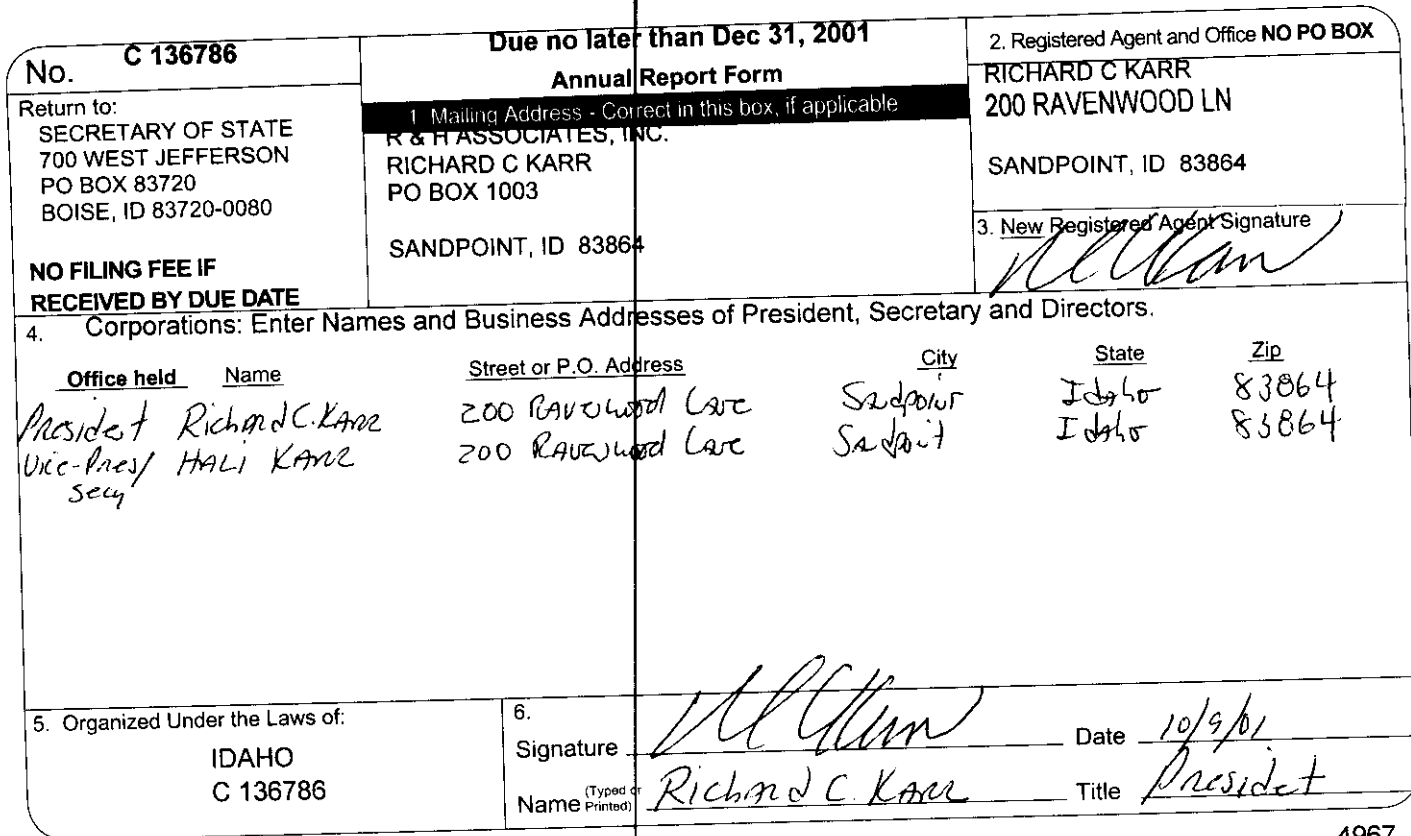 No. C 136786
Return to:
SECRETARY OF STATE
700 WEST JEFFERSON
PO BOX 83720
BOISE, ID 83720-0080
NO FILING FEE IF
RECEIVED BY DUE DATE
Due no later than Dec 31, 2001
Annual Report Form
1 Mailing Address - Correct in this box, if applicable
R & H ASSOCIATES, INC.
RICHARD C KARR
PO BOX 1003
SANDPOINT, ID 83864
2. Registered Agent and Office NO PO BOX
RICHARD C KARR
200 RAVENWOOD LN
SANDPOINT, ID 83864
3. New Registered Agent Signature
4. Corporations: Enter Names and Business Addresses of President, Secretary and Directors.
Office held Name Street or P.O. Address City State Zip
President Richard C. Karr 200 Ravenwood Lane Sandpoint Idaho 83864
Vice-Pres/ HALI KARR 200 Ravenwood Lane Sandpoint Idaho 83864
Secy
5. Organized Under the Laws of:
IDAHO
C 136786
6.
Signature Date 10/9/01
Name (Typed or Printed) Richard C. Karr Title President
4967